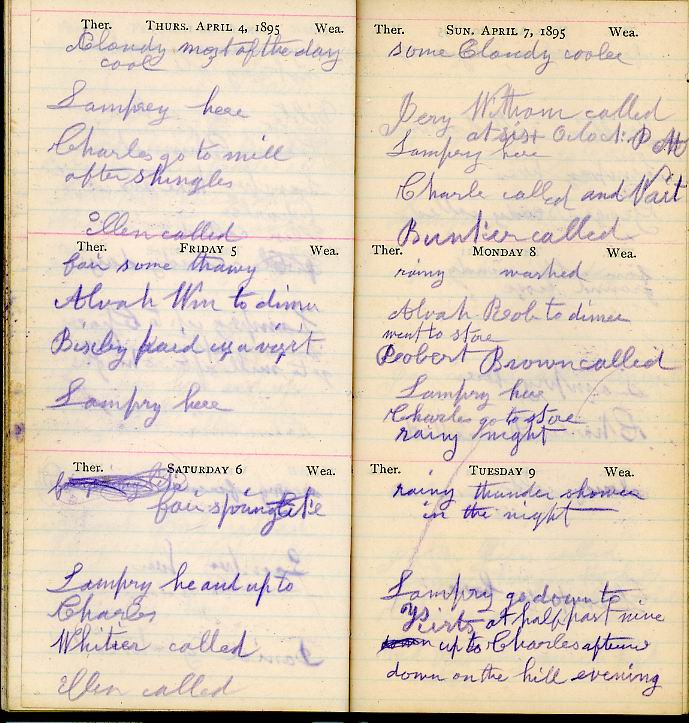 Ther. THURS. APRIL 4, 1895 Wea.
Cloudy most of the day
cool
Lamprey here
Charles go to mill
after shingles
Ellen called
Ther. FRIDAY 5 Wea.
fair some thawy
Alvah Wm to dinner
Bixby paid us a visit
Lampry here
Ther. SATURDAY 6 Wea.
fair springlike
Lampry he and up to
Charles
Whitier called
Ellen called
Ther. SUN. APRIL 7, 1895 Wea.
some Cloudy cooler
Witham called
at six Oclock P M
Lampry here
Charle called and
called
Ther. MONDAY 8 Wea.
rainy washed
Alvah Rob to dinner
went to store
Robert Brown called
Lampry here
Charles go to store
rainy night
Ther. TUESDAY 9 Wea.
rainy thunder shower
in the night
Lampry go down to
at half past nine
up to Charles
down on the hill evening